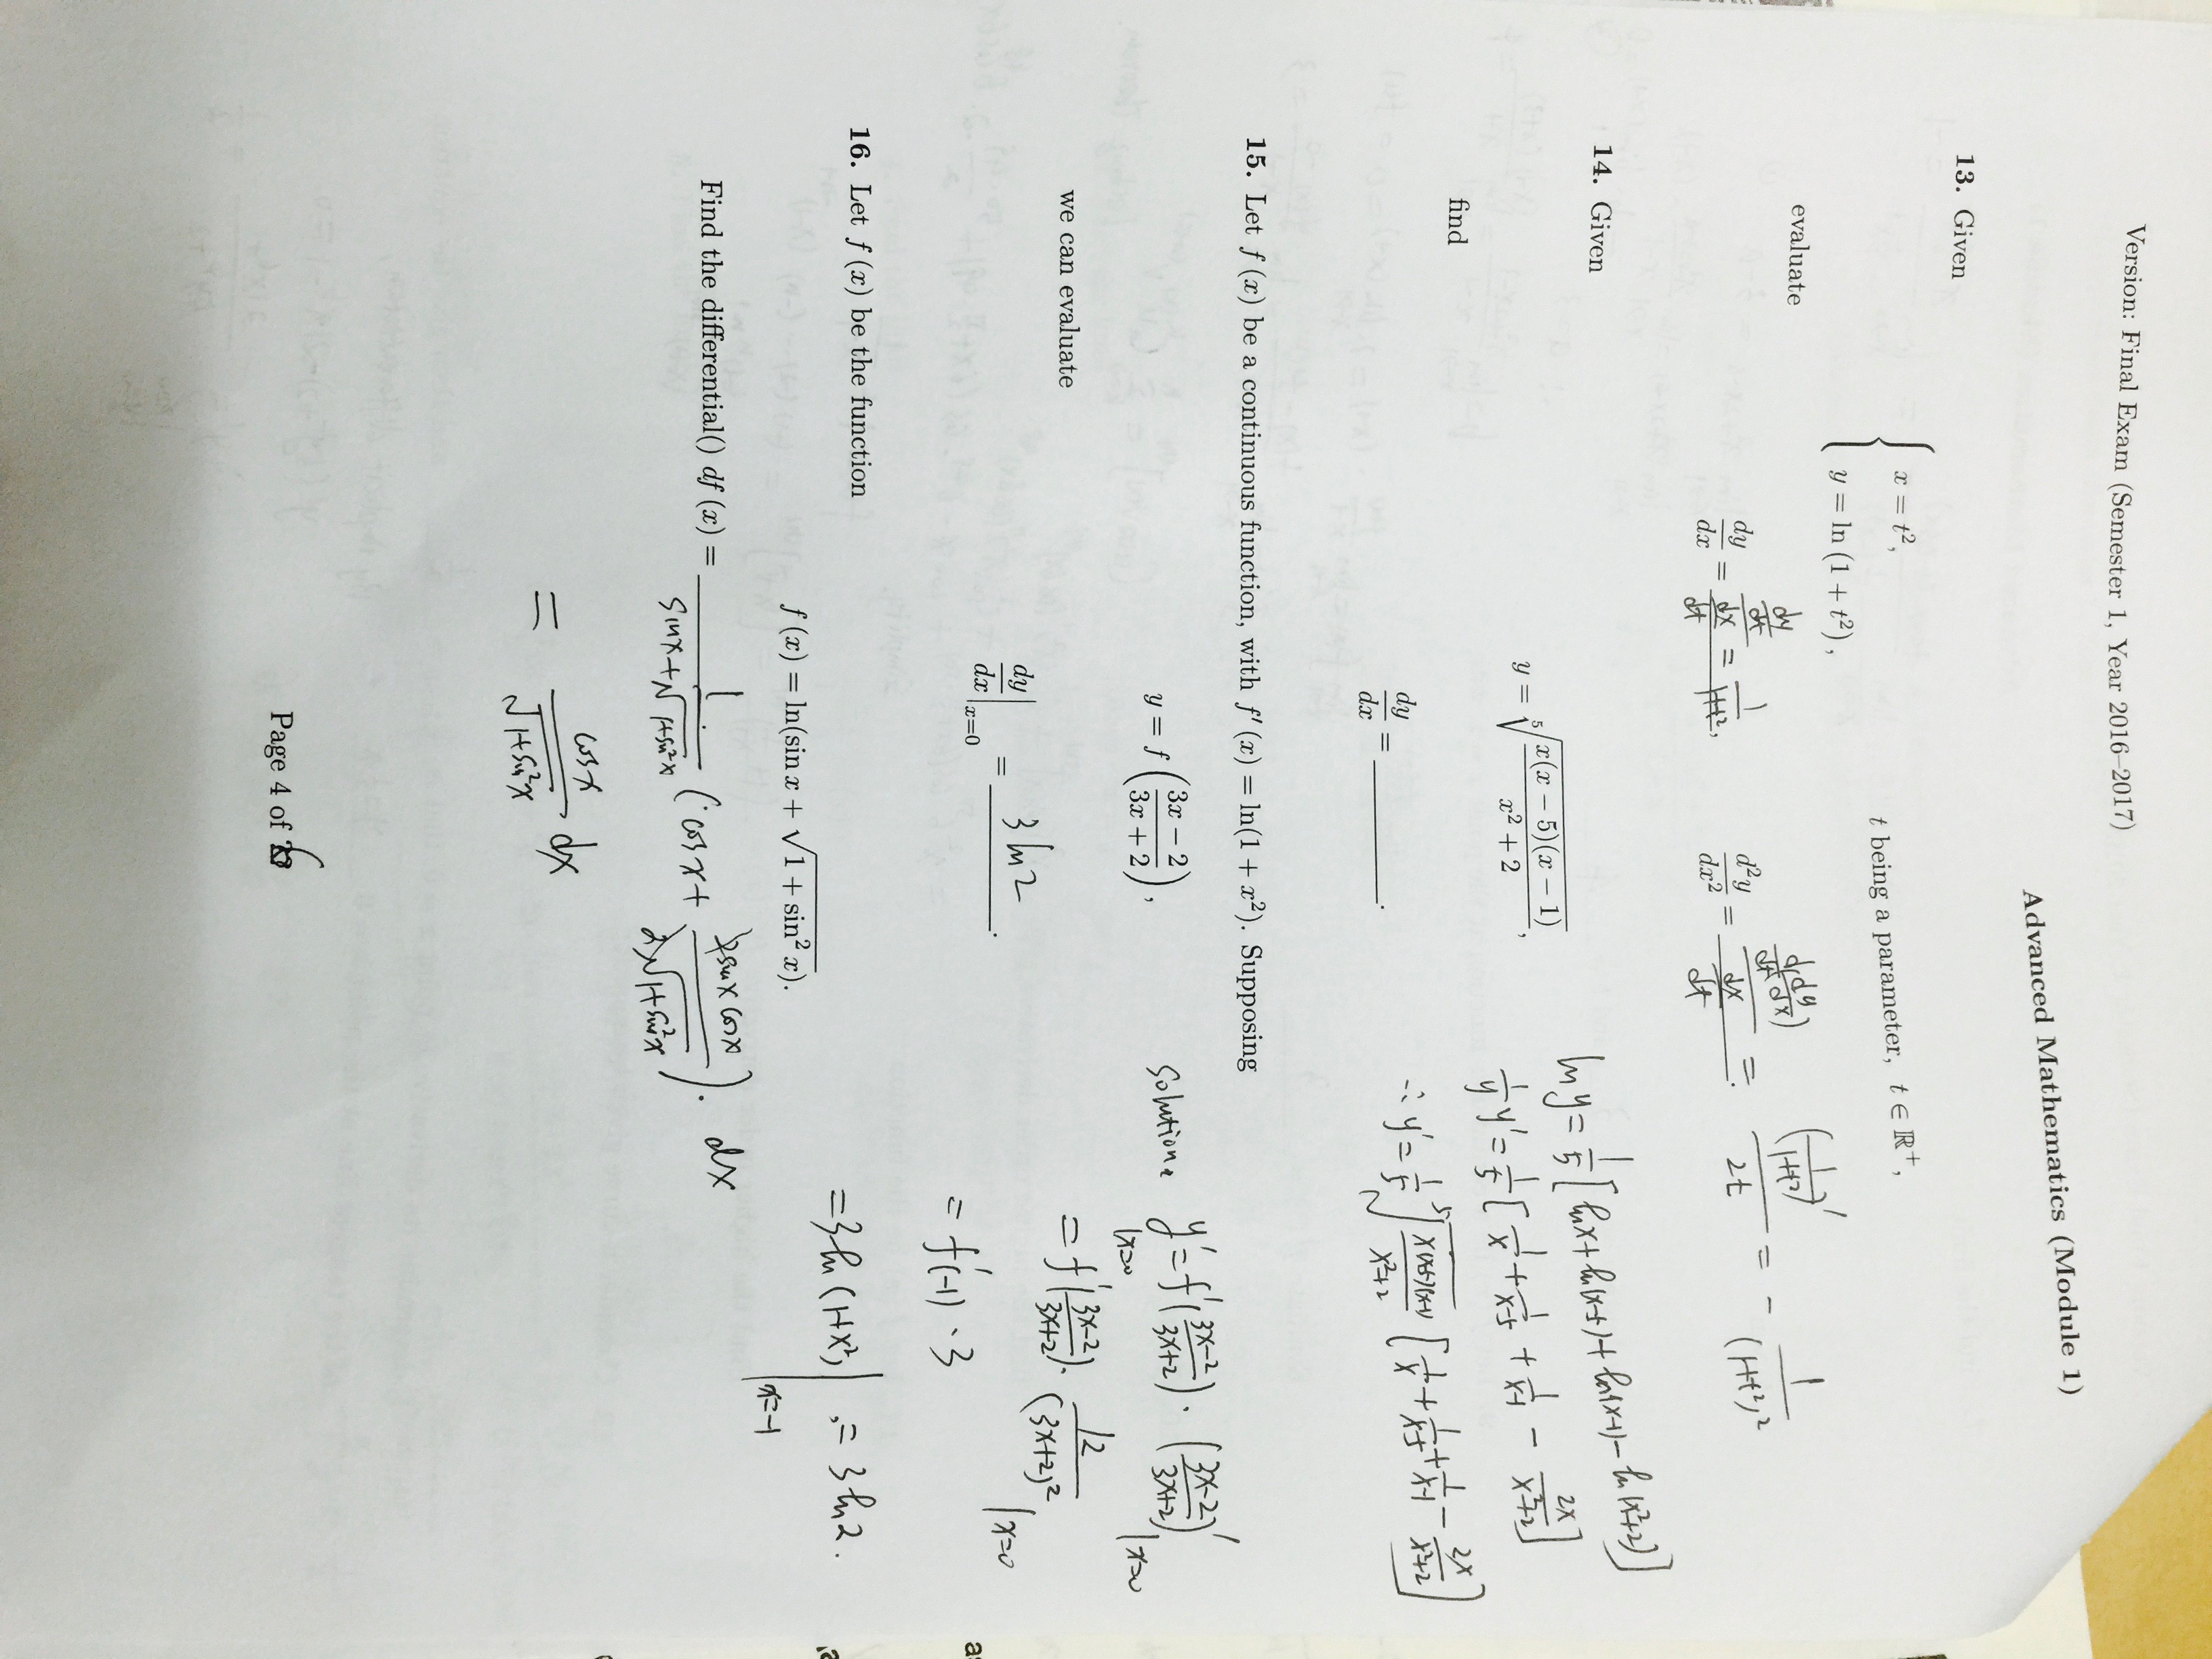 Version: Final Exam (Semester 1, Year 2016–2017)
Advanced Mathematics (Module 1)
13. Given
{ x = t², y = ln(1 + t²),
t being a parameter, t ∈ ℝ⁺,
evaluate
dy/dx = (dy/dt)/(dx/dt) = 1/(1+t²), d²y/dx² = (d/dt(dy/dx))/(dx/dt) = (1/(1+t²))'/2t = - 1/(1+t²)²
14. Given
y = ⁵√(x(x − 5)(x − 1)/(x² + 2)),
find
dy/dx = ______.
ln y = 1/5 [lnx + ln(x-5) + ln(x-1) - ln(x²+2)]
1/y y' = 1/5 [1/x + 1/(x-5) + 1/(x-1) - 2x/(x²+2)]
∴ y' = 1/5 ⁵√(x(x-5)(x-1)/(x²+2)) [1/x + 1/(x-5) + 1/(x-1) - 2x/(x²+2)]
15. Let f (x) be a continuous function, with f′(x) = ln(1 + x²). Supposing
y = f((3x − 2)/(3x + 2)),
we can evaluate
dy/dx|x=0 = 3 ln2.
Solution: y'|x=0 = f'((3x-2)/(3x+2)) · ((3x-2)/(3x+2))'|x=0
= f'((3x-2)/(3x+2)) · 12/(3x+2)² |x=0
= f'(-1) · 3
= 3 ln(1+x²)|x=-1 = 3 ln2.
16. Let f (x) be the function
f (x) = ln(sin x + √(1 + sin² x)).
Find the differential() df (x) = 1/(sinx + √(1+sin²x)) · (cosx + 2sinx cosx/(2√(1+sin²x))) · dx
= cosx/√(1+sin²x) dx
Page 4 of 6